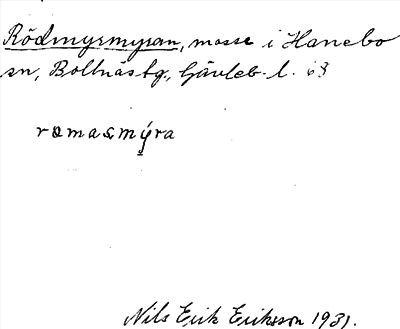 Rödmyrmyran, mosse i Hanebo
sn, Bollnäs tg, Gävleb. l.
romasmýra
Nils Erik Eriksson 1931.